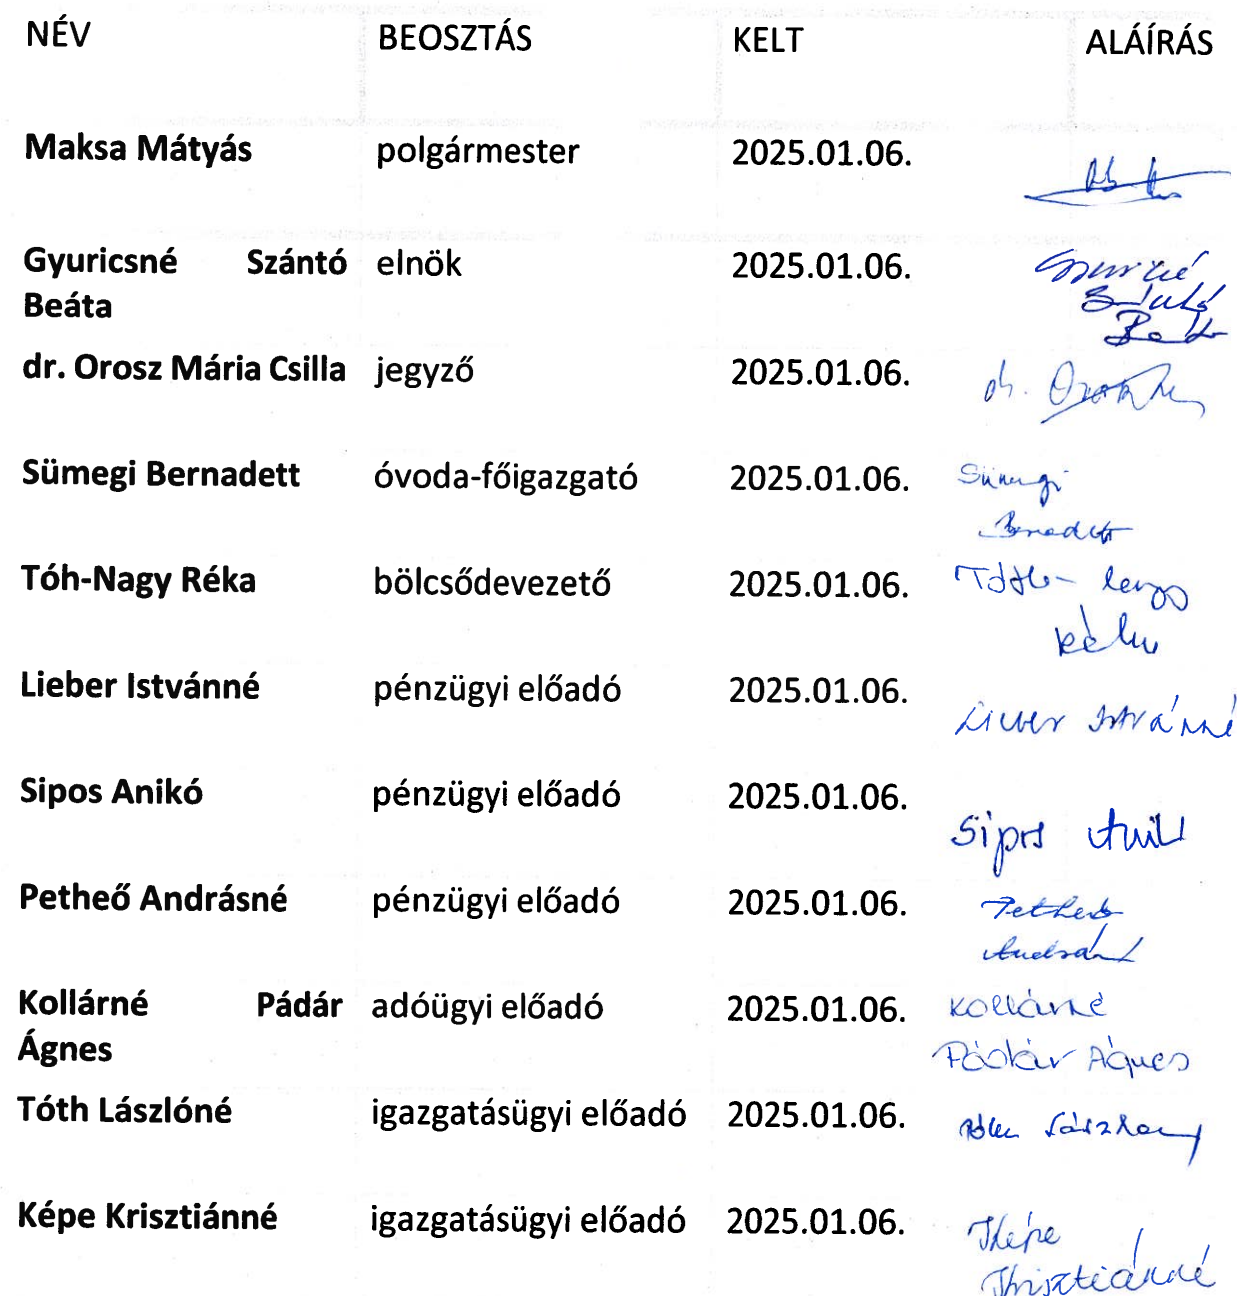 NÉV BEOSZTÁS KELT ALÁÍRÁS
Maksa Mátyás polgármester 2025.01.06.
Gyuricsné Szántó elnök 2025.01.06.
Beáta
Szántó
Beáta
dr. Orosz Mária Csilla jegyző 2025.01.06. dr. Orosz
Sümegi Bernadett óvoda-főigazgató 2025.01.06. Sümegi
Bernadett
Tóh-Nagy Réka bölcsődevezető 2025.01.06. Tóth-
Réka
Lieber Istvánné pénzügyi előadó 2025.01.06. Lieber Istvánné
Sipos Anikó pénzügyi előadó 2025.01.06. Sipos Anikó
Petheő Andrásné pénzügyi előadó 2025.01.06. Petheő
Andrásné
Kollárné Pádár adóügyi előadó 2025.01.06. Kollárné
Ágnes Pádár Ágnes
Tóth Lászlóné igazgatásügyi előadó 2025.01.06. Tóth Lászlóné
Képe Krisztiánné igazgatásügyi előadó 2025.01.06. Képe
Krisztiánné